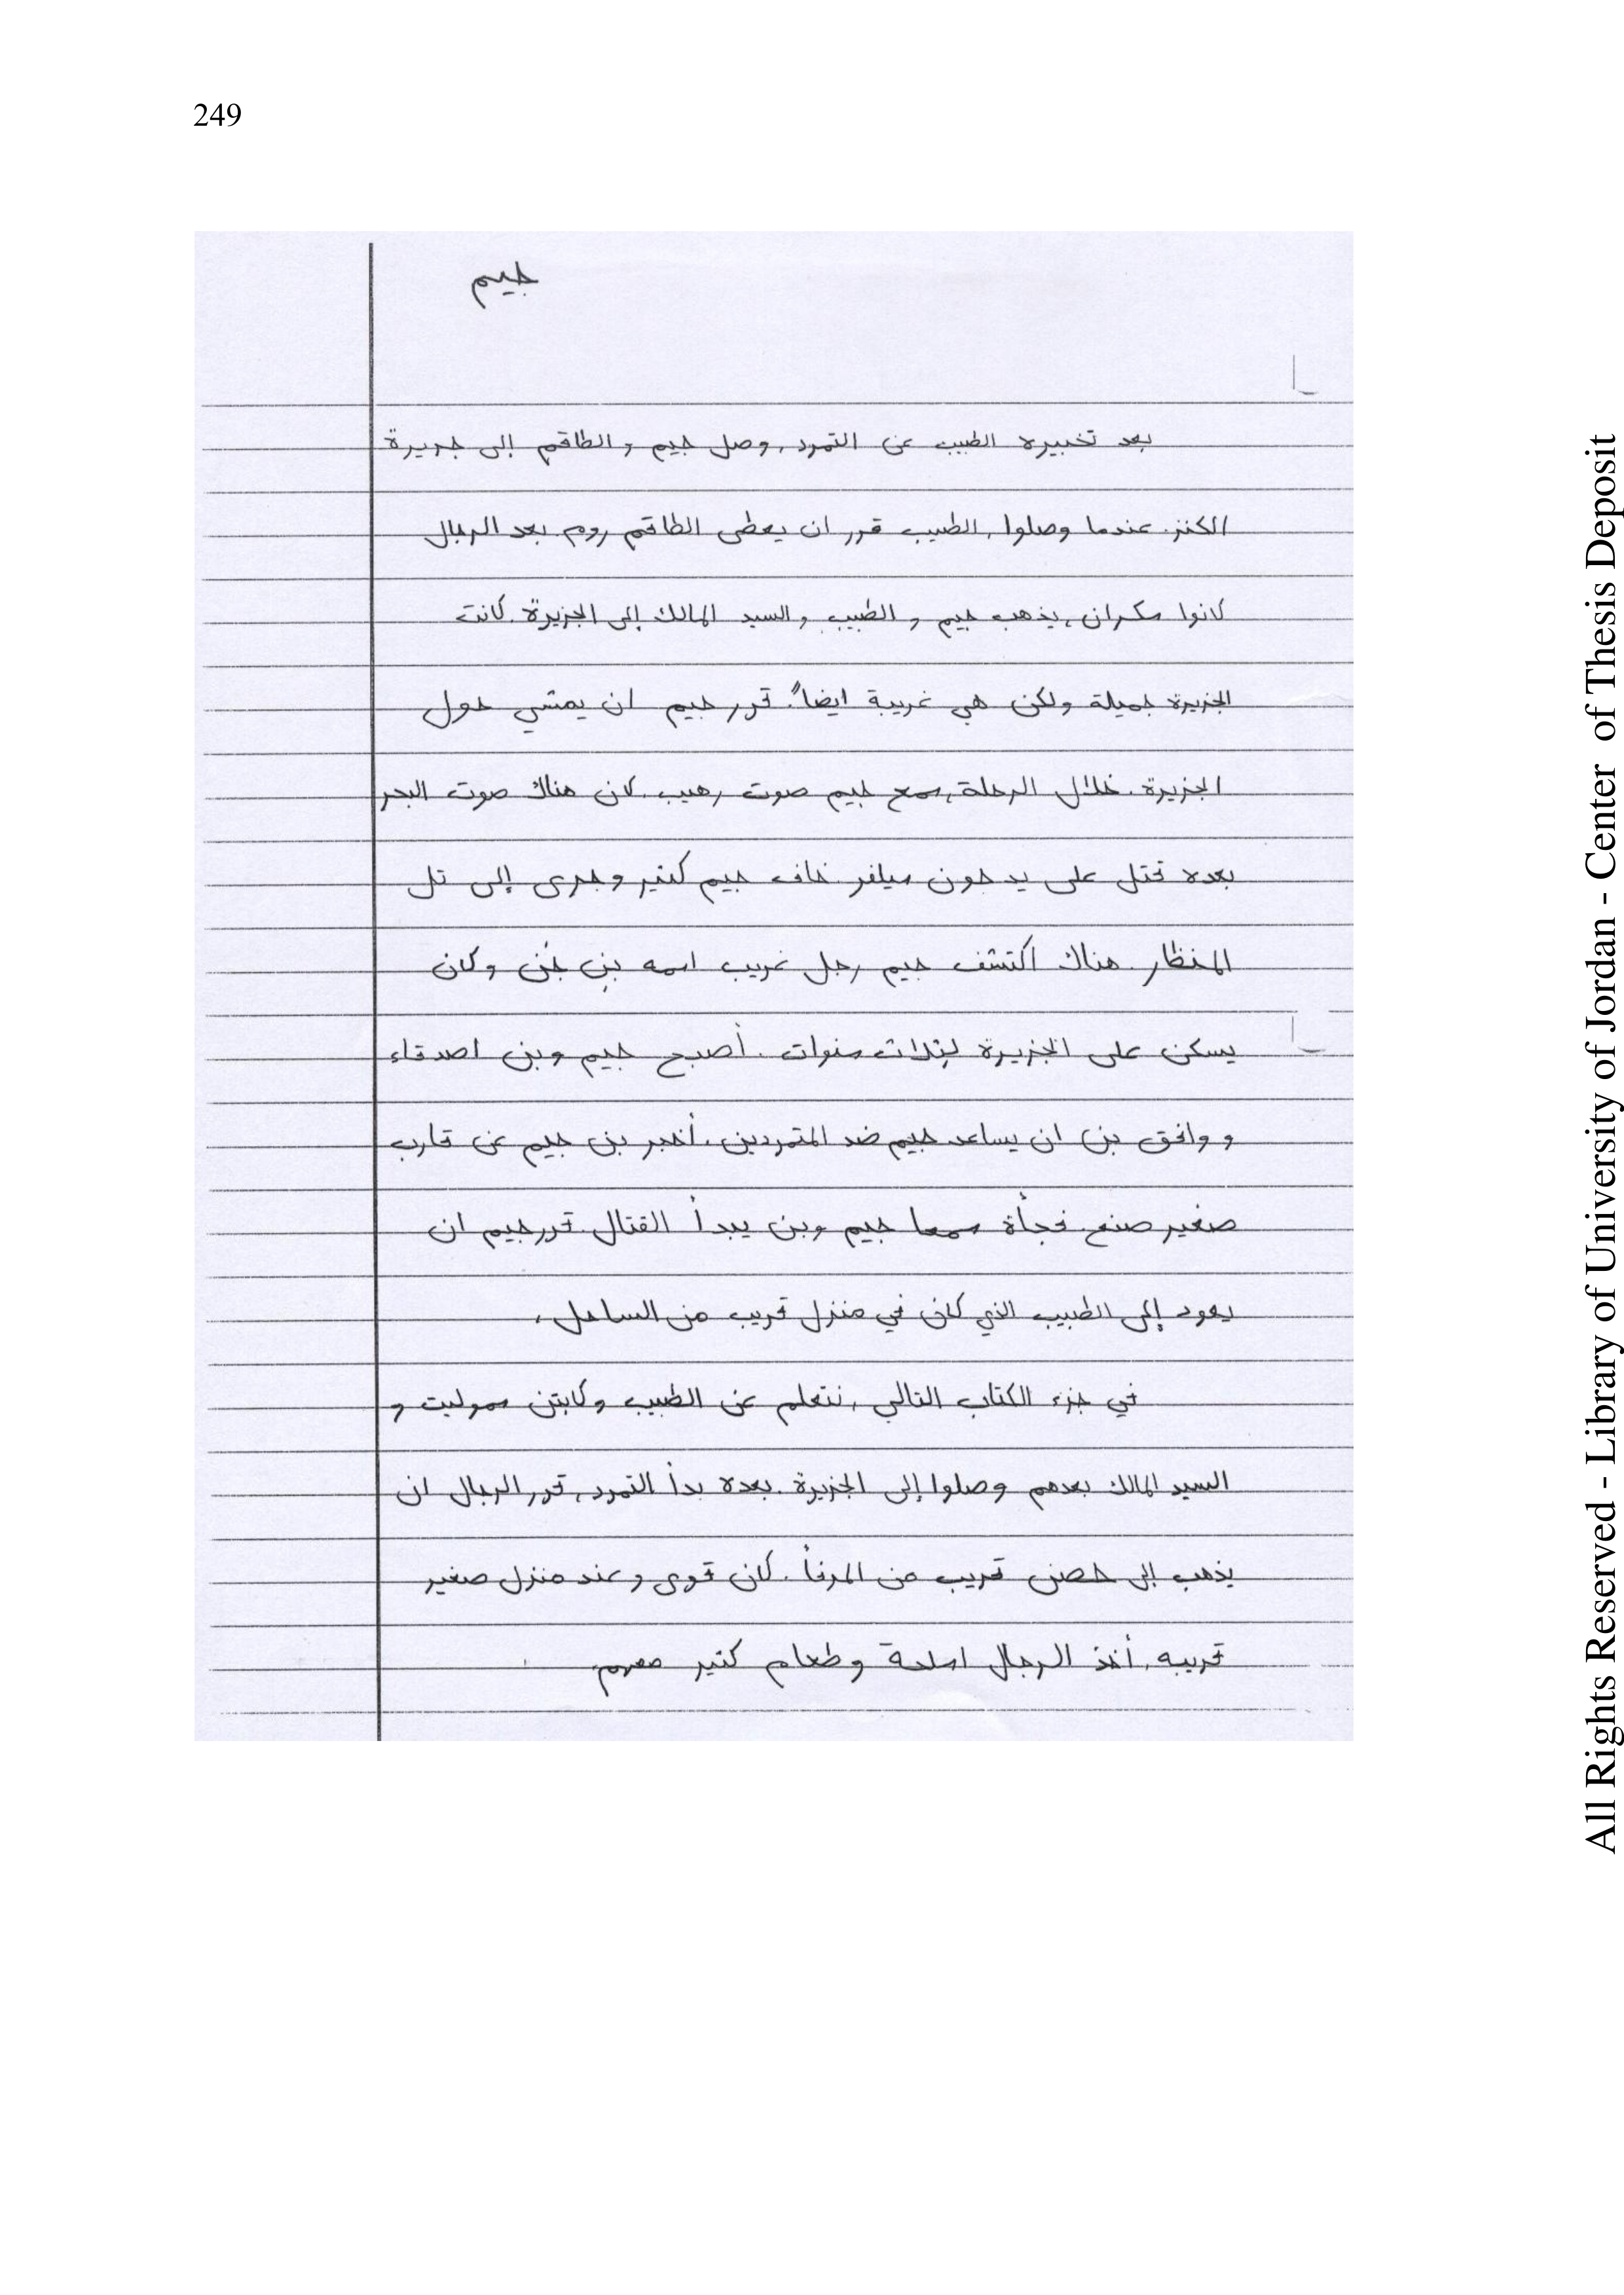 249
جيم
بعد تخبيره الطبيب عن التمرد، وصل جيم و الطاقم إلى جزيرة
الكنز. عندما وصلوا، الطبيب قرر ان يعطى الطاقم روم. بعد الرجال
كانوا سكران، يذهب جيم و الطبيب و السيد المالك إلى الجزيرة. كانت
الجزيرة جميلة ولكن هي غريبة ايضاً. قرر جيم ان يمشي حول
الجزيرة. خلال الرحلة، سمع جيم صوت رهيب. كان هناك صوت البحر
بعده قتل على يد جون سيلفر. خاف جيم كثير وجرى إلى تل
المنظار. هناك اكتشف جيم رجل غريب اسمه بن جن وكان
يسكن على الجزيرة لثلاث سنوات. أصبح جيم وبن اصدقاء
و وافق بن ان يساعد جيم ضد المتمردين. أخبر بن جيم عن قارب
صغير صنع. فجأة سمعا جيم وبن يبدأ القتال. قرر جيم ان
يعود إلى الطبيب الذي كان في منزل قريب من الساحل.
في جزء الكتاب التالي، نتعلم عن الطبيب وكابتن سموليت و
السيد المالك بعدهم وصلوا إلى الجزيرة. بعده بدأ التمرد، قرر الرجال ان
يذهب إلى حصن قريب من المرفأ. كان قوى و عند منزل صغير
قريبه. أخذ الرجال اسلحة وطعام كثير معهم.
All Rights Reserved - Library of University of Jordan - Center of Thesis Deposit